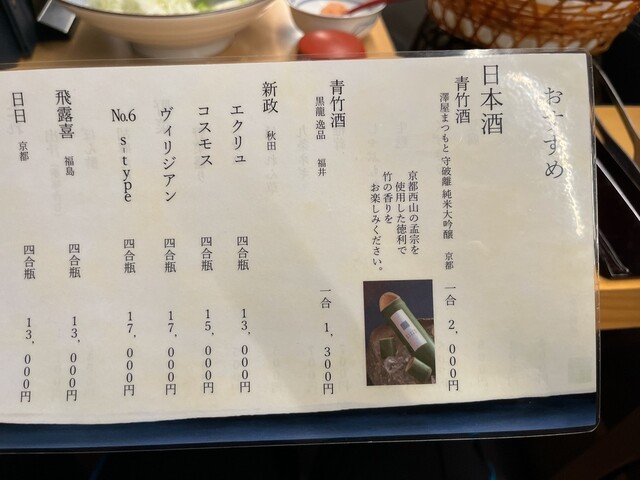 おすすめ
日本酒
青竹酒
澤屋まつもと 守破離 純米大吟醸 京都 一合 2,000円
京都西山の孟宗を
使用した徳利で
竹の香りを
お楽しみください。
青竹酒
黒龍 逸品 福井 一合 1,300円
新政 秋田
エクリュ 四合瓶 13,000円
コスモス 四合瓶 15,000円
ヴィリジアン 四合瓶 17,000円
No.6 s-type 四合瓶 17,000円
飛露喜 福島 四合瓶 13,000円
日日 京都 四合瓶 13,000円